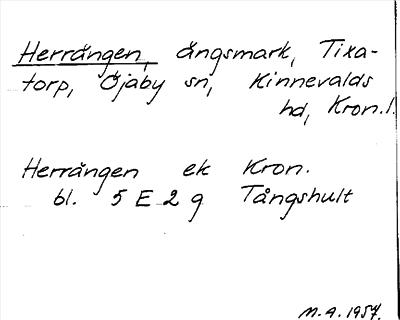 Herrängen, ängsmark, Tixa-
torp, Öjaby sn, Kinnevalds
hd, Kron.l.
Herrängen ek Kron.
bl. 5 E 2 g Tångshult
M.A. 1957.